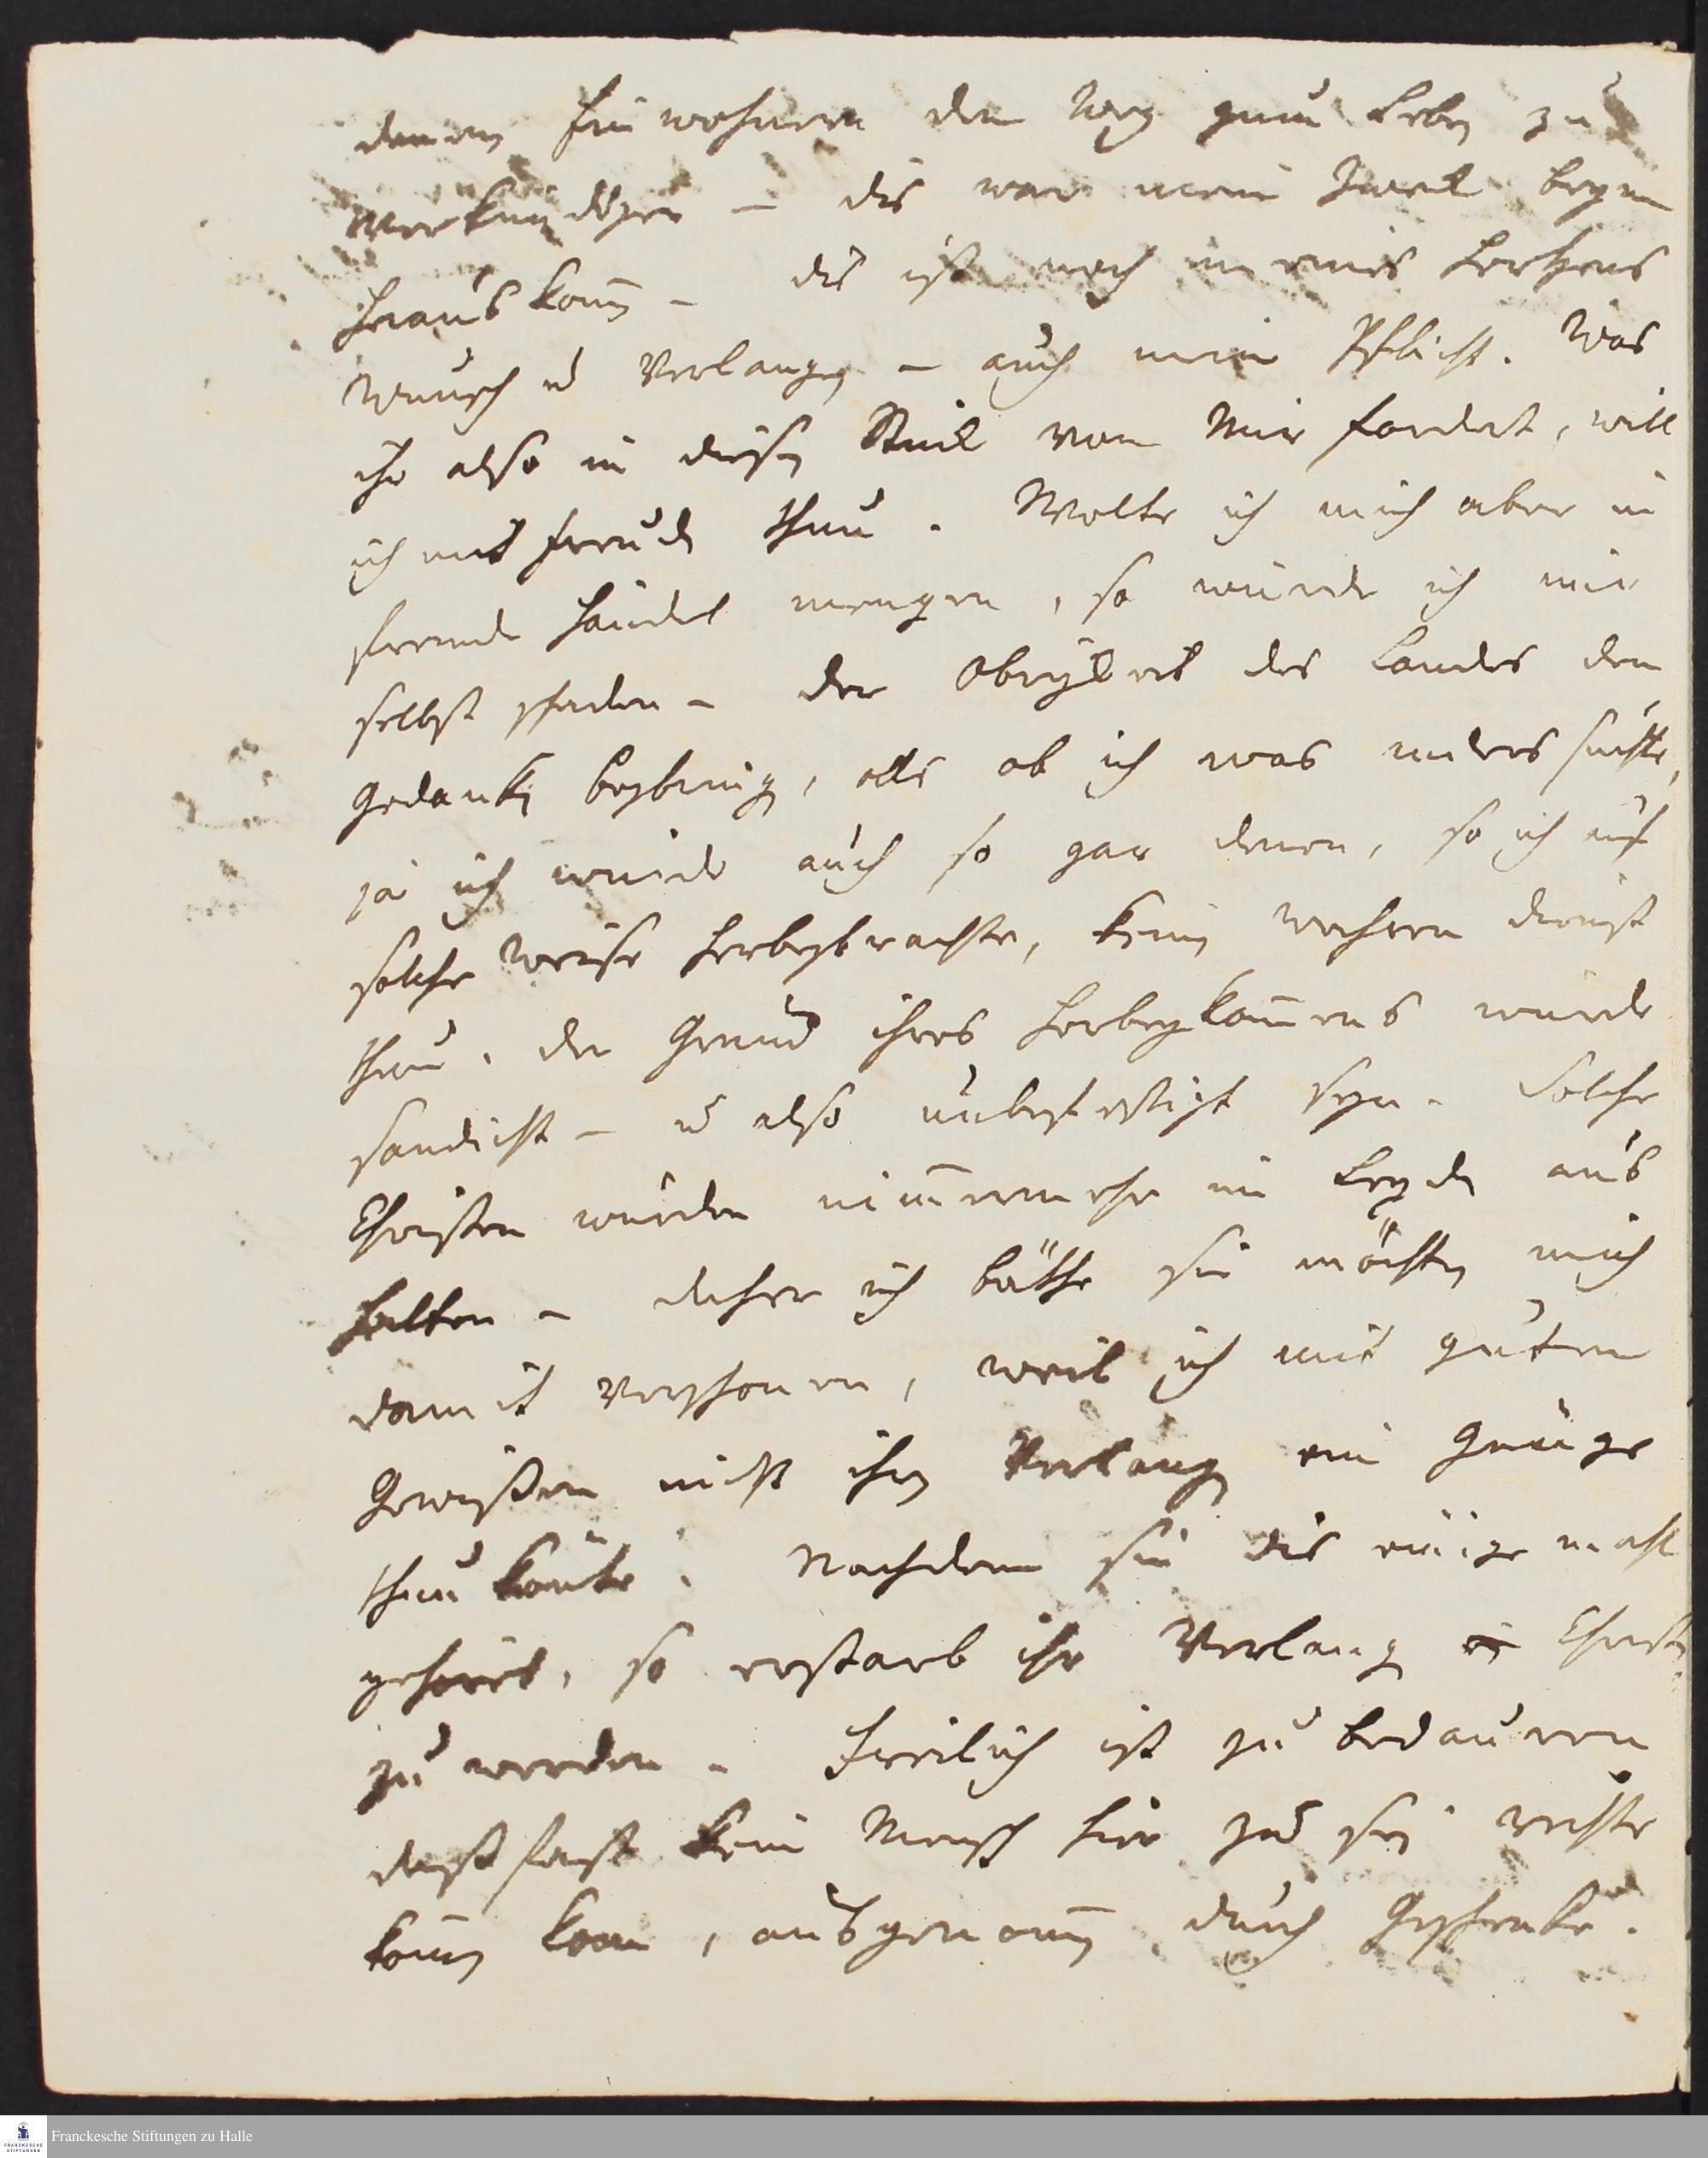 denen Einwohnern den Weg zum Leben zu
verkündigen – dis war mein Zweck beym
herauskom̄en – dis ist noch meines Hertzens
Wunsch u Verlangen – auch meine Pflicht. Was
ihr also in diesen Stück von mir fordert, will
ich mit Freuden thun. Wolte ich mich aber in
fremde Händel mengen, so würde ich mir
selbst schaden – der Obrigkeit des Landes den
Gedanken beybringen, als ob ich was anders suchte,
ja ich würde auch so gar denen, so ich auf
solche Weise herbeybrachte, keinen wahren dienst
thun, der Grund ihres Herbeykom̄ens würde
sandicht – u also unbefestigt seyn. Solche
Christen würden nim̄ermehr im Leyden aus
halten – daher ich bäthe sie möchten mich
damit verschonen, weil ich mit guten
Gewißen nicht ihren Verlangen ein Genüge
thun könte. Nachdem sie dis einige mahl
gehört, so erstarb ihr Verlangen Christen
zu werden. Freilich ist zu bedauren
daß fast kein Mensch hier zu rechte
kom̄en kann, ausgenom̄en durch Geschenke.
Franckesche Stiftungen zu Halle